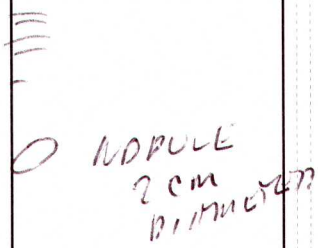 NODULE
2 cm
DIAMETER